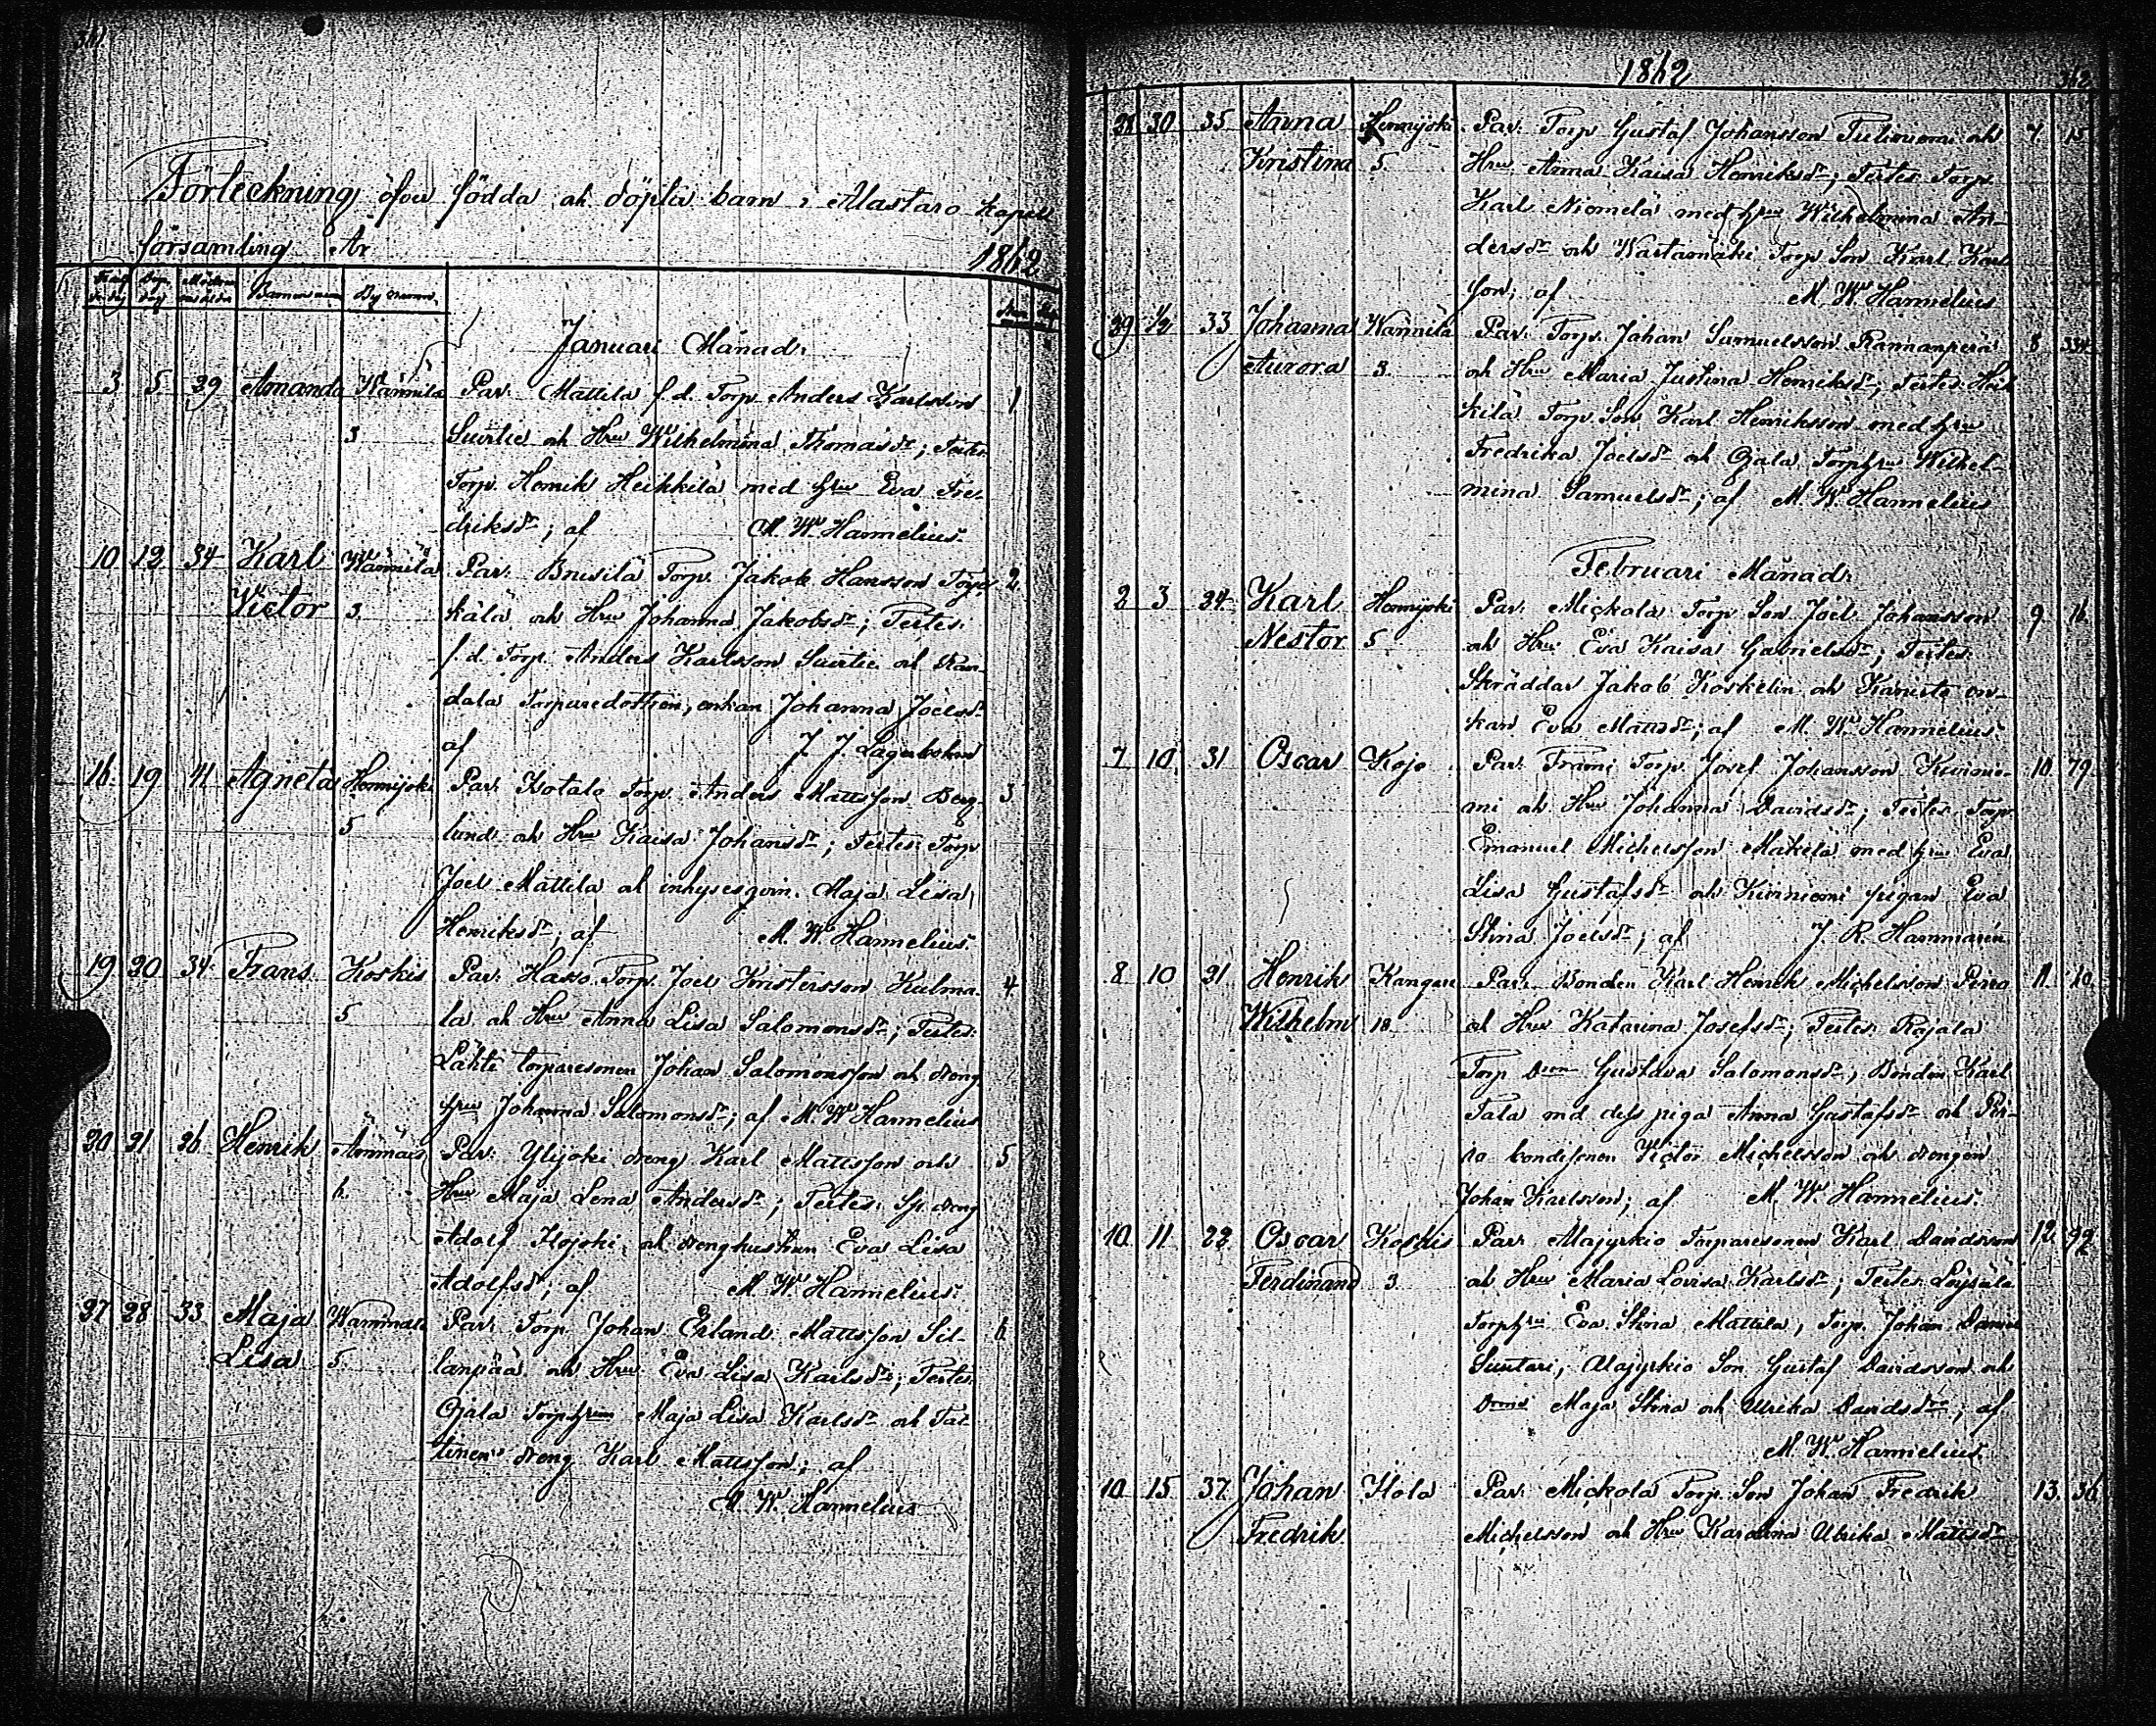 361.
Förteckning öfver födda och döpta barn i Alastaro kapell
församling År 1862
Barnens namn By namn
Januari Månad.
3 5 39 Amanda Wännilä Par. Mattila f. d. Torp. Anders Karlsson 1
3 Suirtie och Hru Wilhelmina Thomasdr; Testes:
Torp. Henrik Heikkilä med hru Eva Fre-
driksdr; af M. W. Hannelius.
10 12 34 Karl Wännilä Par. Torp. Jakob Hansson 2
Victor 3. kälä och Hru Johanna Jakobsdr; Testes:
f. d. Torp. Anders Karlsson Suirtie och Ran-
dala Torparedottren, enkan Johanna Joelsdr
af J. J. Lagerbohm
16. 19 41 Agneta Hennijoki Par. Isotalo Torp. Anders Mattsson Berg- 3
5 lund och Hru Kaisa Johansdr; Testes: Torp.
Joel Mattila och inhysesqvin. Maja Lisa
Henriksdr; af M. W. Hannelius.
19 20 34. Frans Koskis Par. Hasso Torp. Joel Kristersson Kulma- 4
5 la och Hru Anna Lisa Salomonsdr; Testes:
Lähti torparesonen Johan Salomonsson och dreng
hru Johanna Salomonsdr; af M. W. Hannelius
20 21 26. Henrik Ämmäis Par. Ylijoki dreng Karl Mattsson och 5
6. Hru Maja Lena Andersdr; Testes: Sp. dreng
Adolf Ilojoki och drenghustrun Eva Lisa
Adolfsdr; af M. W. Hannelius.
27 28 33 Maja Wammala Par. Torp. Johan Erland Mattsson Sil- 6.
Lisa 5 lanpää och Hru Eva Lisa Karlsdr; Testes:
Ojala Torphrun Maja Lisa Karlsdr och Tat-
tinen dreng Karl Mattsson; af
M. W. Hannelius
1862 362
28 30 35 Anna Hennijoki Par. Torp. Gustaf Johansson och 7 15
Kristina 5. Hru Anna Kaisa Henriksdr; Testes: Torp.
Karl Niemelä med hru Wilhelmina An-
dersdr och Wartamäki Torp. Son Karl Karls
son; af M. W. Hannelius
29 1/2 33 Johanna Wännilä Par. Torp. Johan Samuelsson Rannanperä 8 334
Aurora 3. och Hru Maria Justina Henriksdr; Testes: Heik
kilä Torp. Son Karl Henriksson med hru
Fredrika Joelsdr och Ojala Torphru Wilhel-
mina Samuelsdr; af M. W. Hannelius
Februari Månad.
2 3 34 Karl Hennijoki Par. Mickola Torp. Son Joel Johansson 9. 16.
Nestor 5 och Hru Eva Kaisa Gabrielsdr; Testes:
Skräddar Jakob Koskelin och Kanisto en-
kan Eva Mattsdr; af M. W. Hannelius.
7 10. 31 Oscar Kojo Par. Frami Torp. Josef Johansson Kuinnie- 10. 79.
mi och Hru Johanna Davidsdr; Testes: Torp.
Emanuel Michelsson Mäkelä med hru Eva
Lisa Gustafsdr och Kuinniemi pigan Eva
Stina Joelsdr; af J. R. Hammarén
8 10 21 Henrik Kangare Par. Bonden Karl Henrik Michelsson Pirro 11. 10.
Wilhelm 10. och Hru Katarina Josefsdr; Testes: Rajala
Torp. Dren Gustava Salomonsdr, Bonden Karl
Tala med dess piga Anna Gustafsdr och Pir-
ro bondesonen Victor Michelsson och drengen
Johan Karlsson; af M. W. Hannelius.
10. 11. 22. Oscar Koskis Par. Majyrkiö Torparesonen Karl Davidsson 12. 92
Ferdinand 3. och Hru Maria Lovisa Karlsdr; Testes:
Torphru Eva Stina Mattila, Torp. Johan
Suntari, Alajyrkiö Son Gustaf Davidsson och
Maja Stina och Ulrika Davidsdr; af
M. W. Hannelius.
10. 15 37. Johan Hola Par. Mickola Torp. Son Johan Fredrik 13. 36
Fredrik Michelsson och Hru Karolina Ulrika Mattsdr